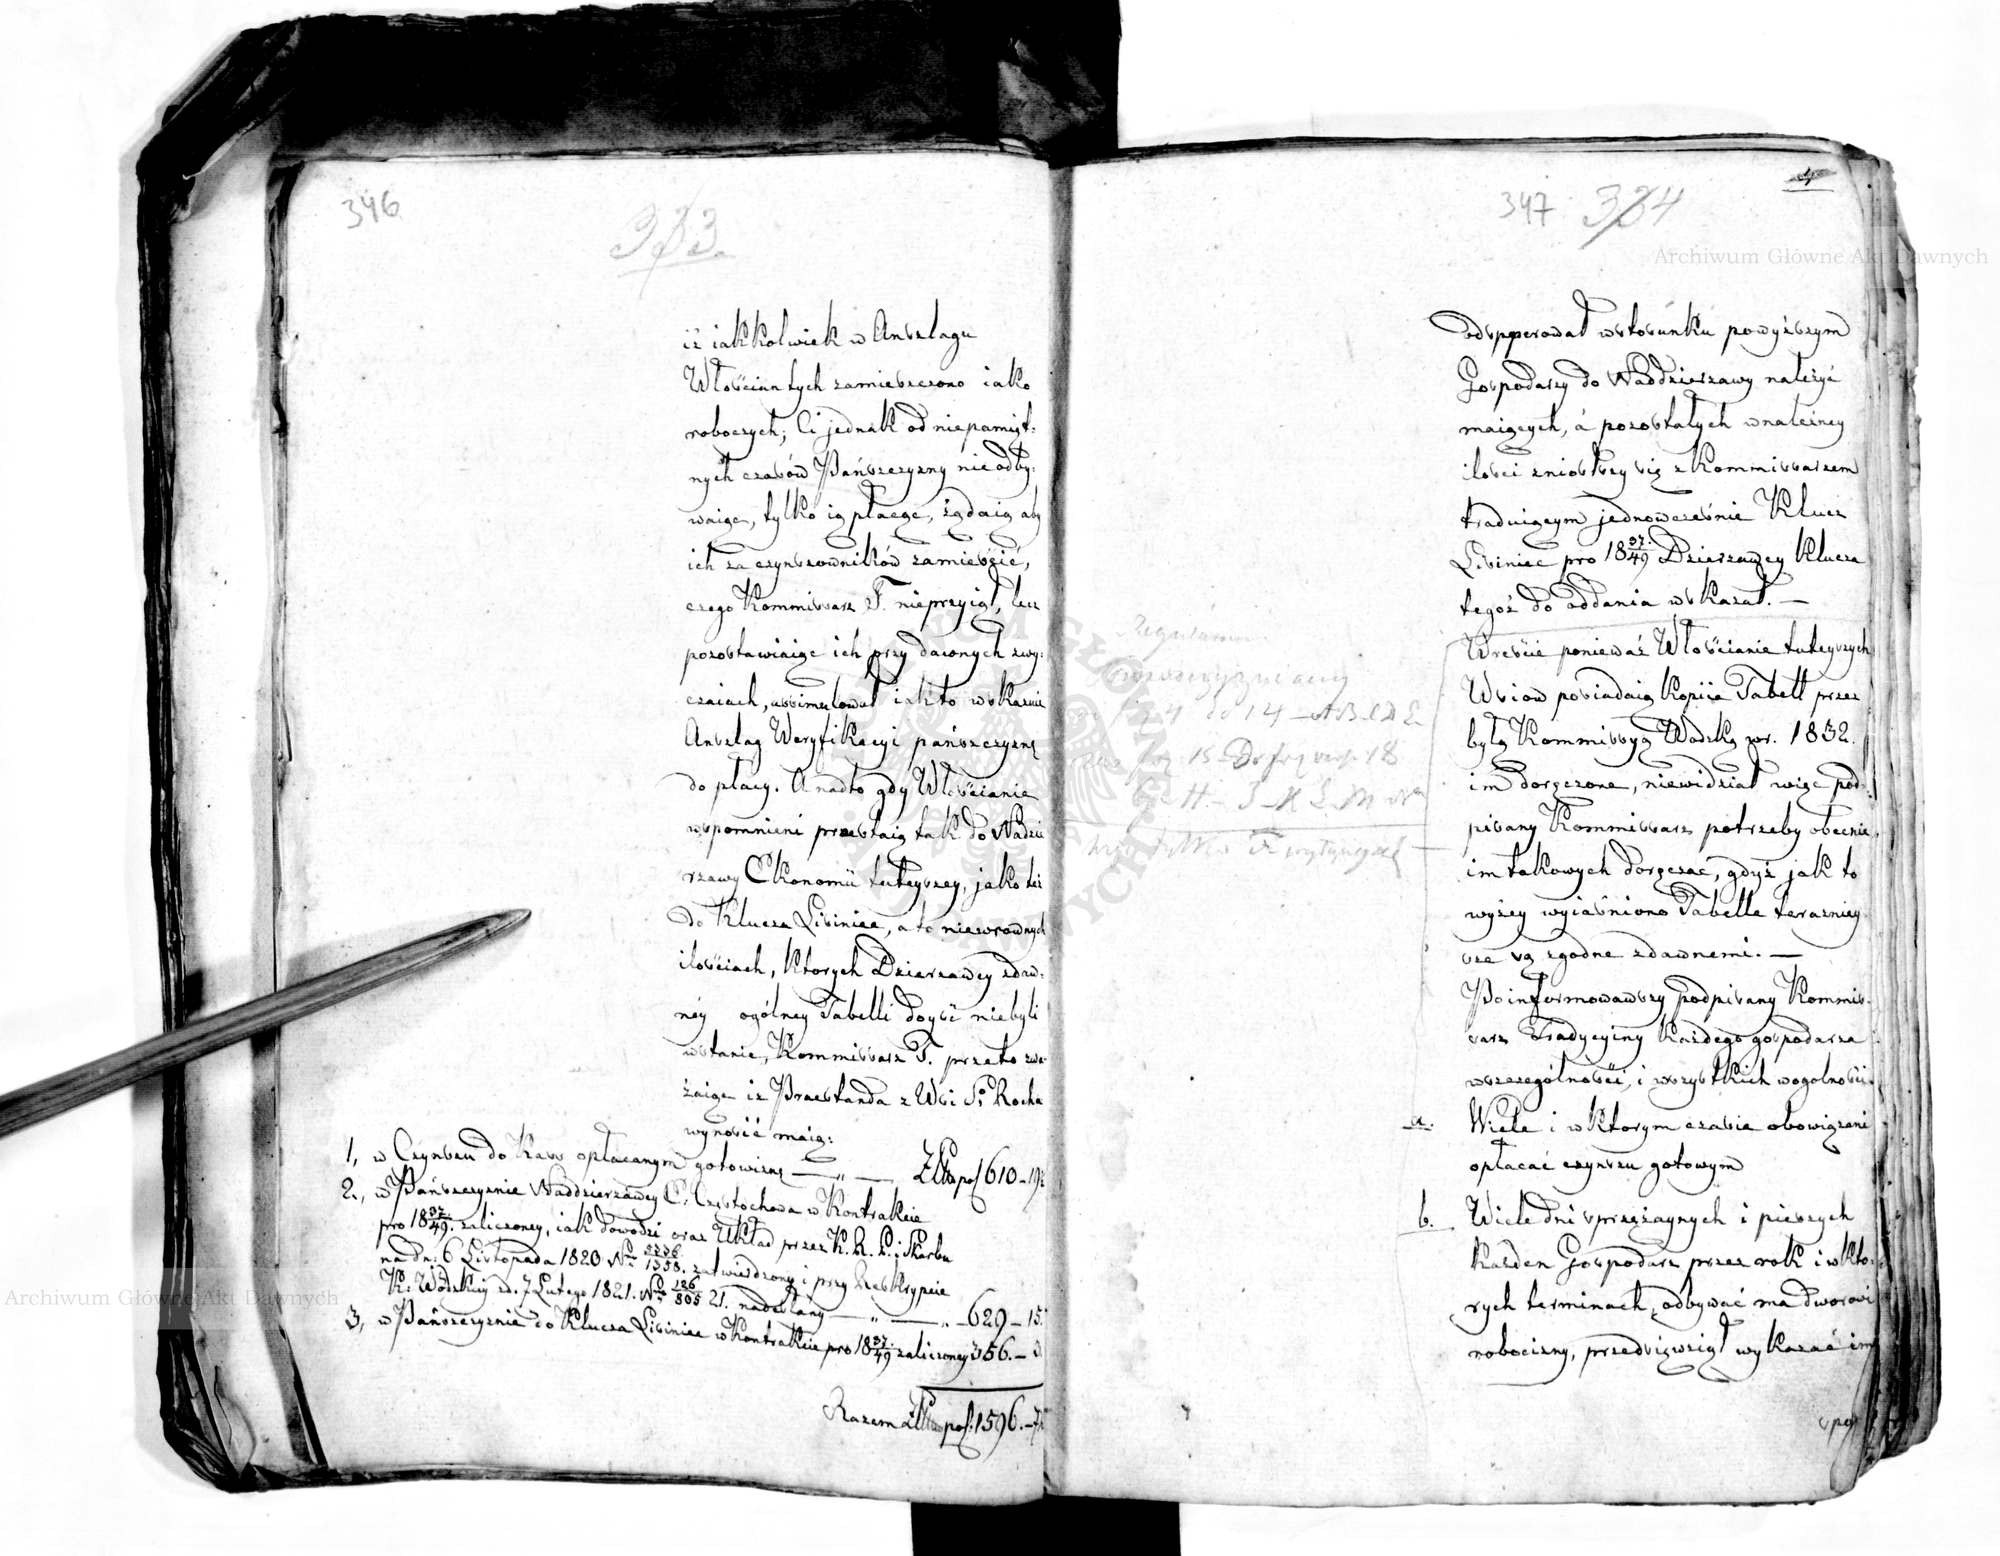 346
333
iż iakkolwiek w Anszlagu
Włościan tych zamieszczono iako
roboczych; Ci jednak od niepamięt-
nych czasów Pańszczyzny nie odby-
waiąc, tylko ią płacąc, żądaią aby
ich za czynszowników zamieścić,
czego Kommissarz T. nieprzyiął, lecz
pozostawiaiąc ich przy dawnych zwy-
czaiach, assimilował iak to wskazuie
Anszlag Weryfikacyi pańszczyznę
do płacy. A nadto gdy Włościanie
wspomnieni przestaią tak do Naddzie
rzawy Ekonomii tuteyszey, jako też
do Klucza Lisiniec, a to niezrównych
ilościach, których Dzierzawcy zdaw-
néy ogólney Tabelli doyść niebyli
wstanie, Kommissarz T. przeto zwa-
żaiąc iż Praestanda z Wsi S. Rocha
wynosić maią:
1, w Czynszu do Kassy opłacanym gotowizną — „ — Złłpol 610 - 19
2., w Pańszczyznie Naddzierzawcy E. Częstochowa w Kontrakcie
pro 18 37/49. zaliczoney, iak dowodzi oraz Układ przez K. R. P. i Skarbu
na dn: 6 Listopada 1820 No 1358. zatwierdzony i przy Reskrypcie
K: Wdzkiey zd. 7 Lutego 1821. No 126/805 21. nadesłany — „ — „ - 629 - 15
3, w Pańszczyznie do Klucza Lisiniec w Kontrakcie pro 18 37/49 zaliczoney 356. -
Razem Złłpol: 1596. -
4
347 334
odseperował wstosunku powyższym
Gospodarzy do Naddzierzawy należyć
maiących, á pozostałych w należney
ilości zniósłszy się z Kommissarzem
traduiącym jednowcześnie Klucz
Lisiniec pro 18 37/49 Dzierzawcy Klucza
tegoż do oddania wskazał. —
Wreście ponieważ Włościanie tuteyszych
Wsiów posiadaią kopiie Tabell przez
byłą Kommissyą Wdzką w r. 1832.
im doręczone, niewidział więc pod-
pisany Kommissarz potrzeby obecnie
im takowych doręczać, gdyż jak to
wyżey wyiaśniono Tabelle teraźniey
sze są zgodne zdawnemi. —
Poinformowawszy podpisany Kommis-
sarz Tradycyiny każdego gospodarza
wszczególności, i wszystkich wogolności
a. Wiele i w ktorym czasie obowiązani
opłacać czynszu gotowym
b. Wiele dni sprzężaynych i pieszych
każden Gospodarz przez rok i wkto-
rych terminach, odbywać ma dworowi
robocizny, przedsięwziął wykazać im